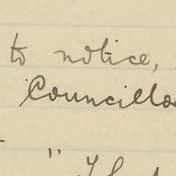 to notice,
Councillo
"